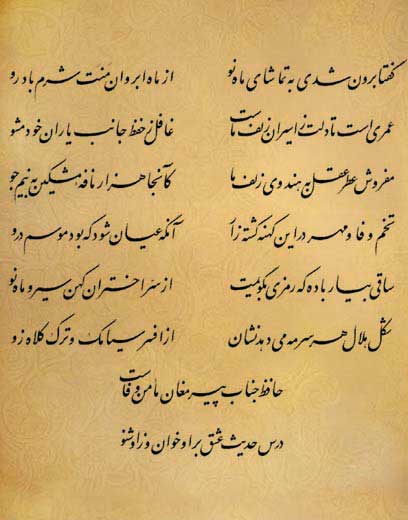 گفتا برون شدی به تماشای ماه نو از ماه ابروان منت شرم باد رو
عمریست تا دلت ز اسیران زلف ماست غافل ز حفظ جانب یاران خود مشو
مفروش عطر عقل به هندوی زلف ما کآنجا هزار نافه مشکین به نیم جو
تخم وفا و مهر در این کهنه کشته زار آنگه عیان شود که بود موسم درو
ساقی بیار باده که رمزی بگویمت از سر اختران کهن سیر و ماه نو
شکل هلال هر سر مه می دهد نشان از افسر سیامک و ترک کلاه زو
حافظ جناب پیر مغان مامن وفاست
درس حدیث عشق بر او خوان و ز او شنو